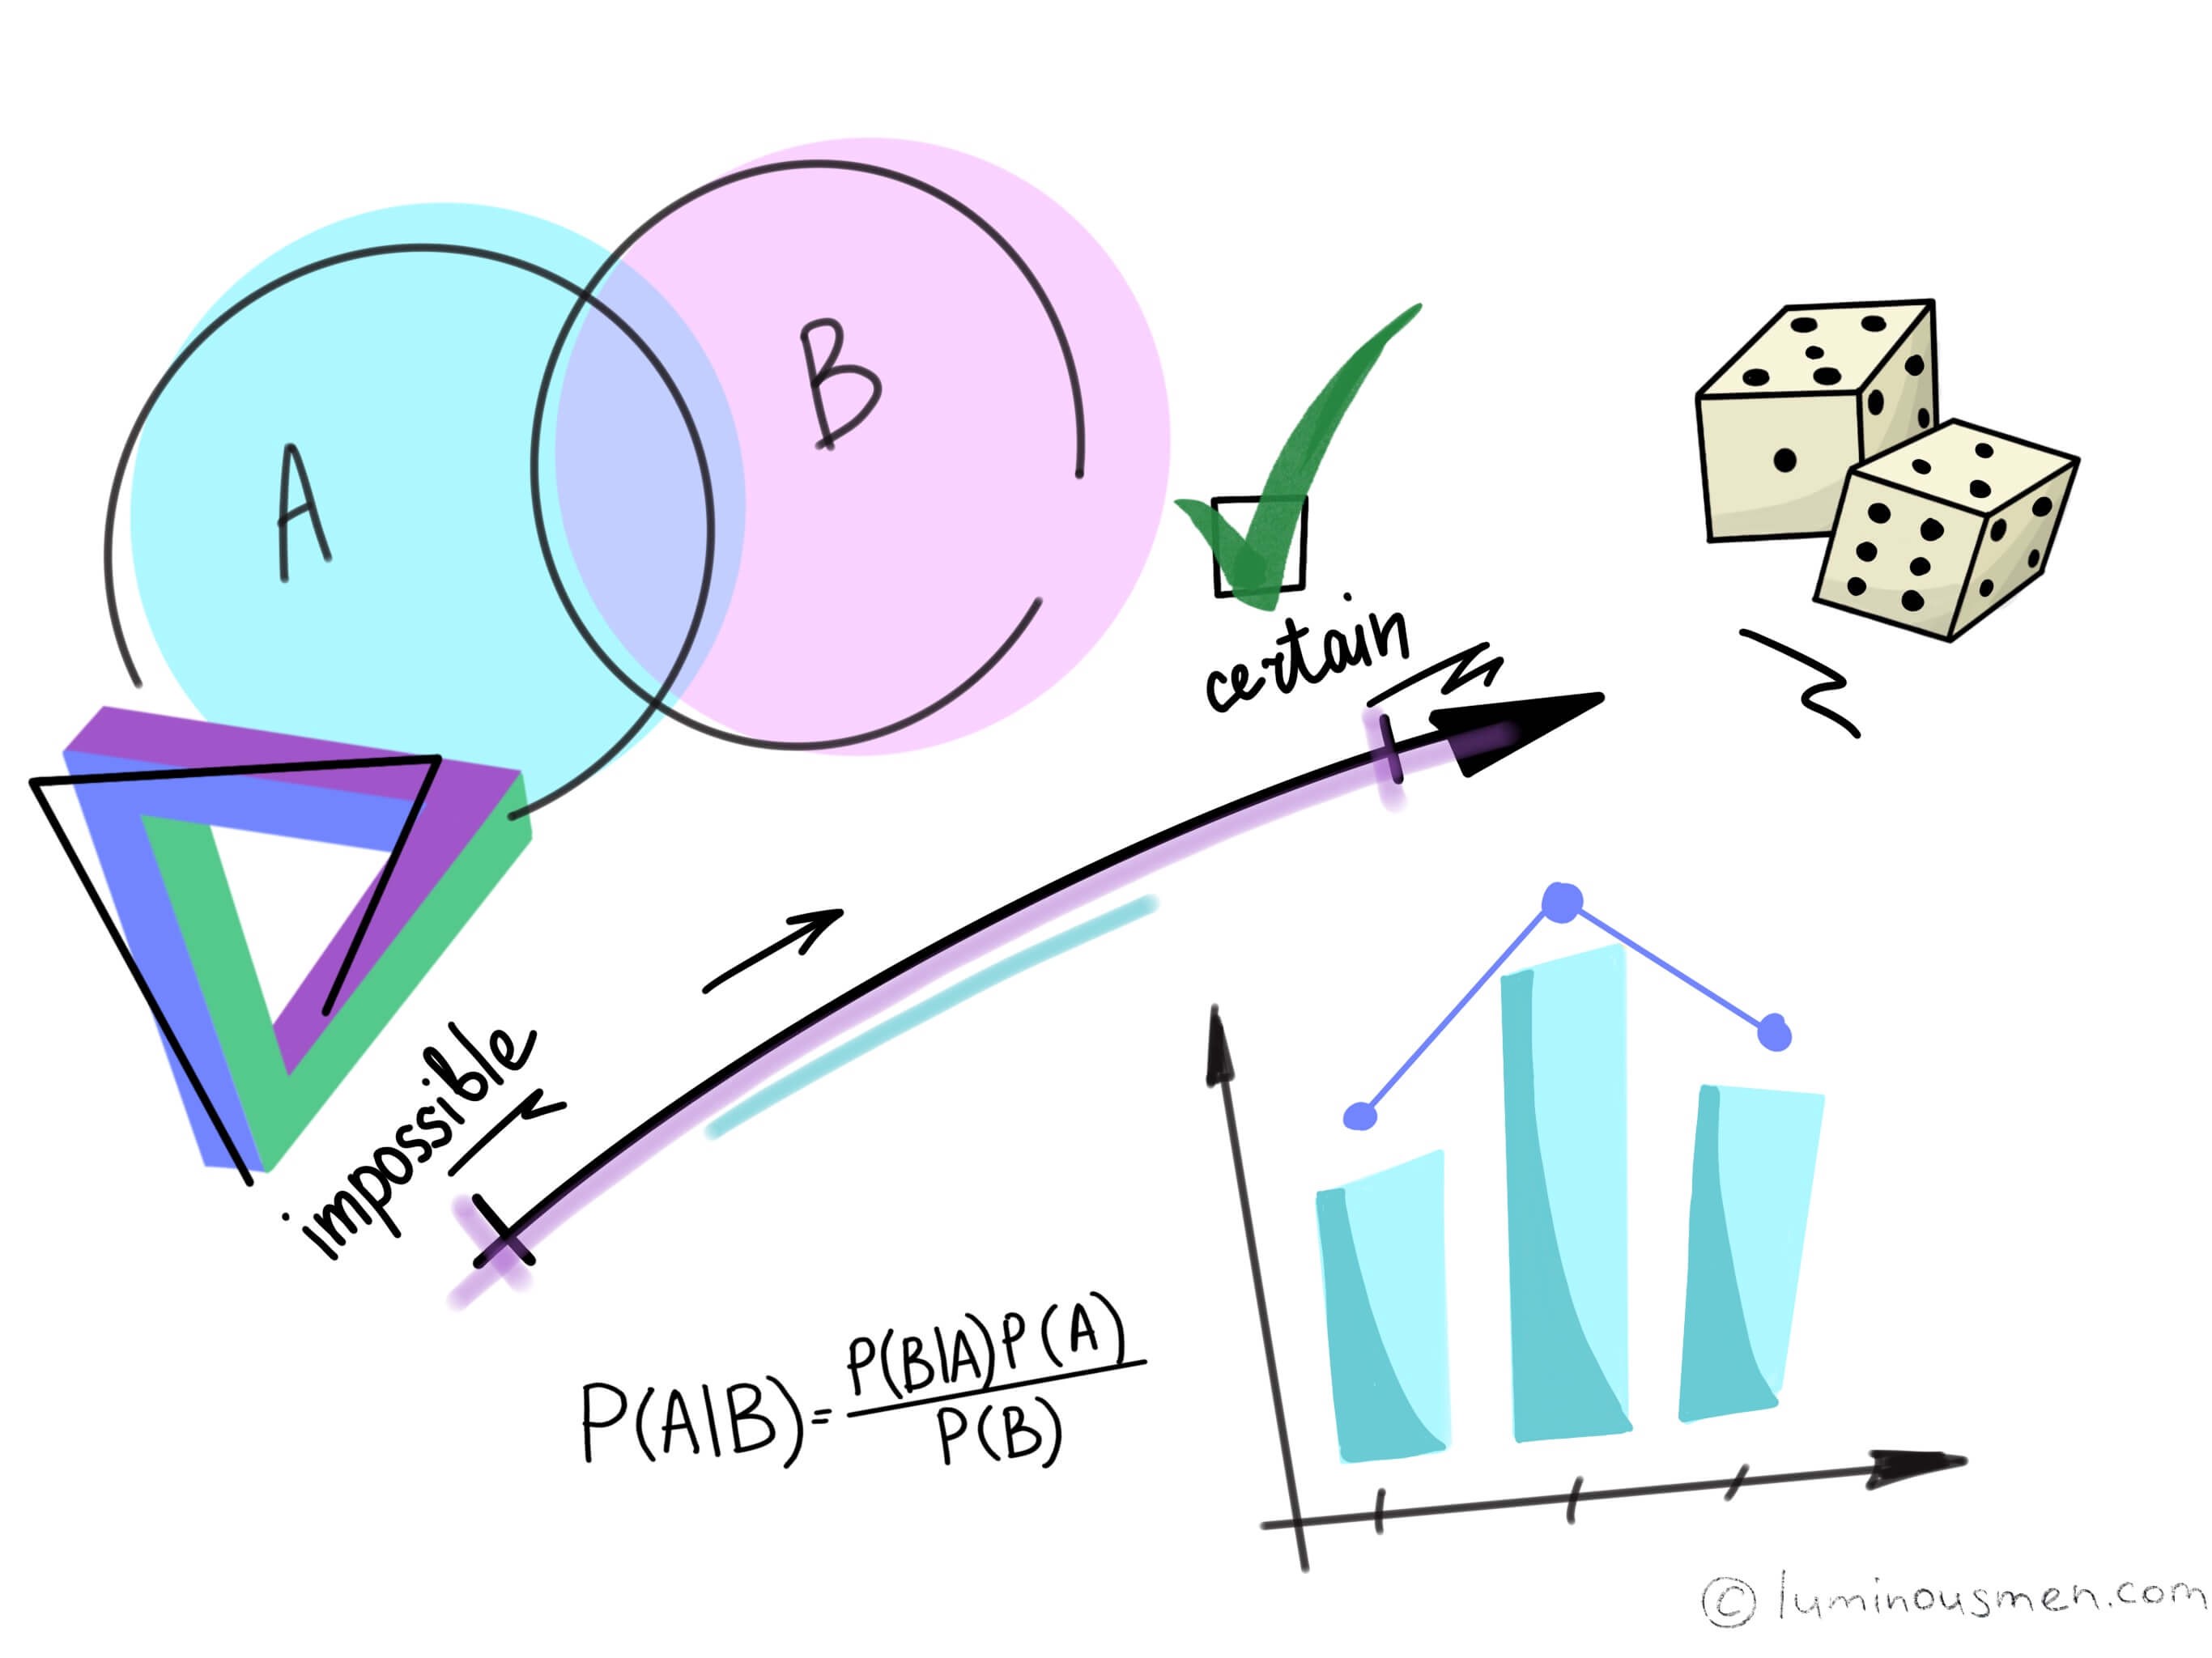 A
B
certain
impossible
P(A|B) = P(B|A)P(A) / P(B)
© luminousmen.com